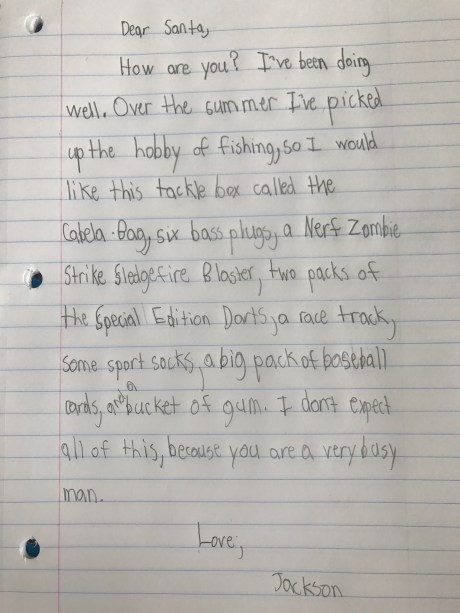 Dear Santa,
How are you? I've been doing
well. Over the summer I've picked
up the hobby of fishing, so I would
like this tackle box called the
Cabela Bag, six bass plugs, a Nerf Zombie
Strike Sledgefire Blaster, two packs of
the Special Edition Darts, a race track,
some sport socks, a big pack of baseball
cards, and a bucket of gum. I don't expect
all of this, because you are a very busy
man.
Love,
Jackson